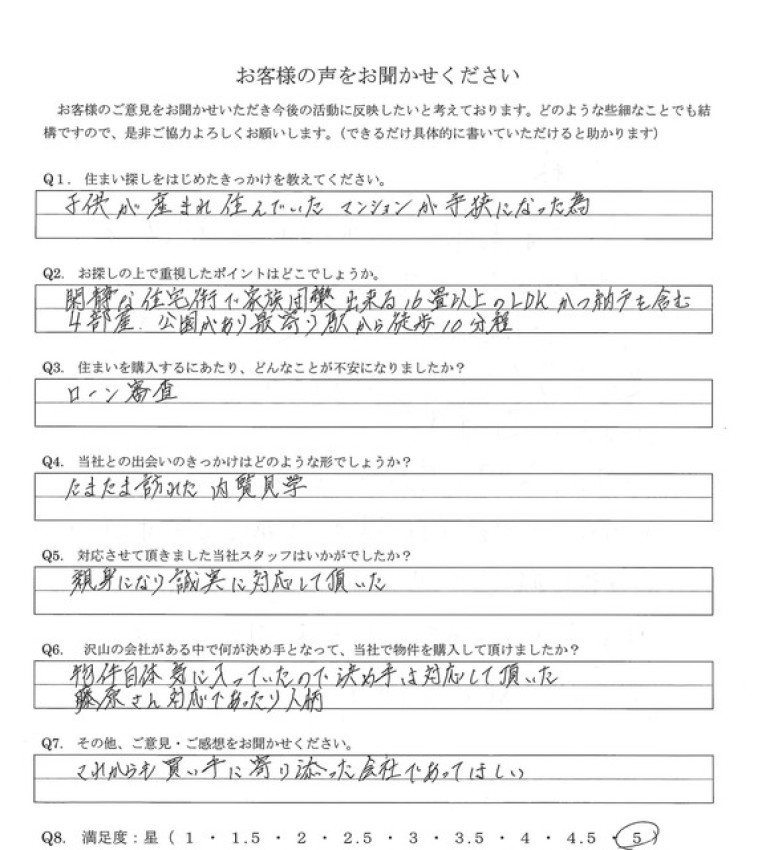 お客様の声をお聞かせください
お客様のご意見をお聞かせいただき今後の活動に反映したいと考えております。どのような些細なことでも結
構ですので、是非ご協力よろしくお願いします。（できるだけ具体的に書いていただけると助かります）
Q1. 住まい探しをはじめたきっかけを教えてください。
子供が産まれ住んでいたマンションが手狭になった為
Q2. お探しの上で重視したポイントはどこでしょうか。
閑静な住宅街で家族団欒出来る16畳以上のLDKかつ納戸も含む
4部屋.公園があり最寄り駅から徒歩10分程
Q3. 住まいを購入するにあたり、どんなことが不安になりましたか？
ローン審査
Q4. 当社との出会いのきっかけはどのような形でしょうか？
たまたま訪れた内覧見学
Q5. 対応させて頂きました当社スタッフはいかがでしたか？
親身になり誠実に対応して頂いた
Q6. 沢山の会社がある中で何が決め手となって、当社で物件を購入して頂けましたか？
物件自体気に入っていたので決め手は対応して頂いた
藤原さん対応であったり人柄
Q7. その他、ご意見・ご感想をお聞かせください。
これからも買い手に寄り添った会社であってほしい
Q8. 満足度：星（ 1 ・ 1.5 ・ 2 ・ 2.5 ・ 3 ・ 3.5 ・ 4 ・ 4.5 ・ 5 ）